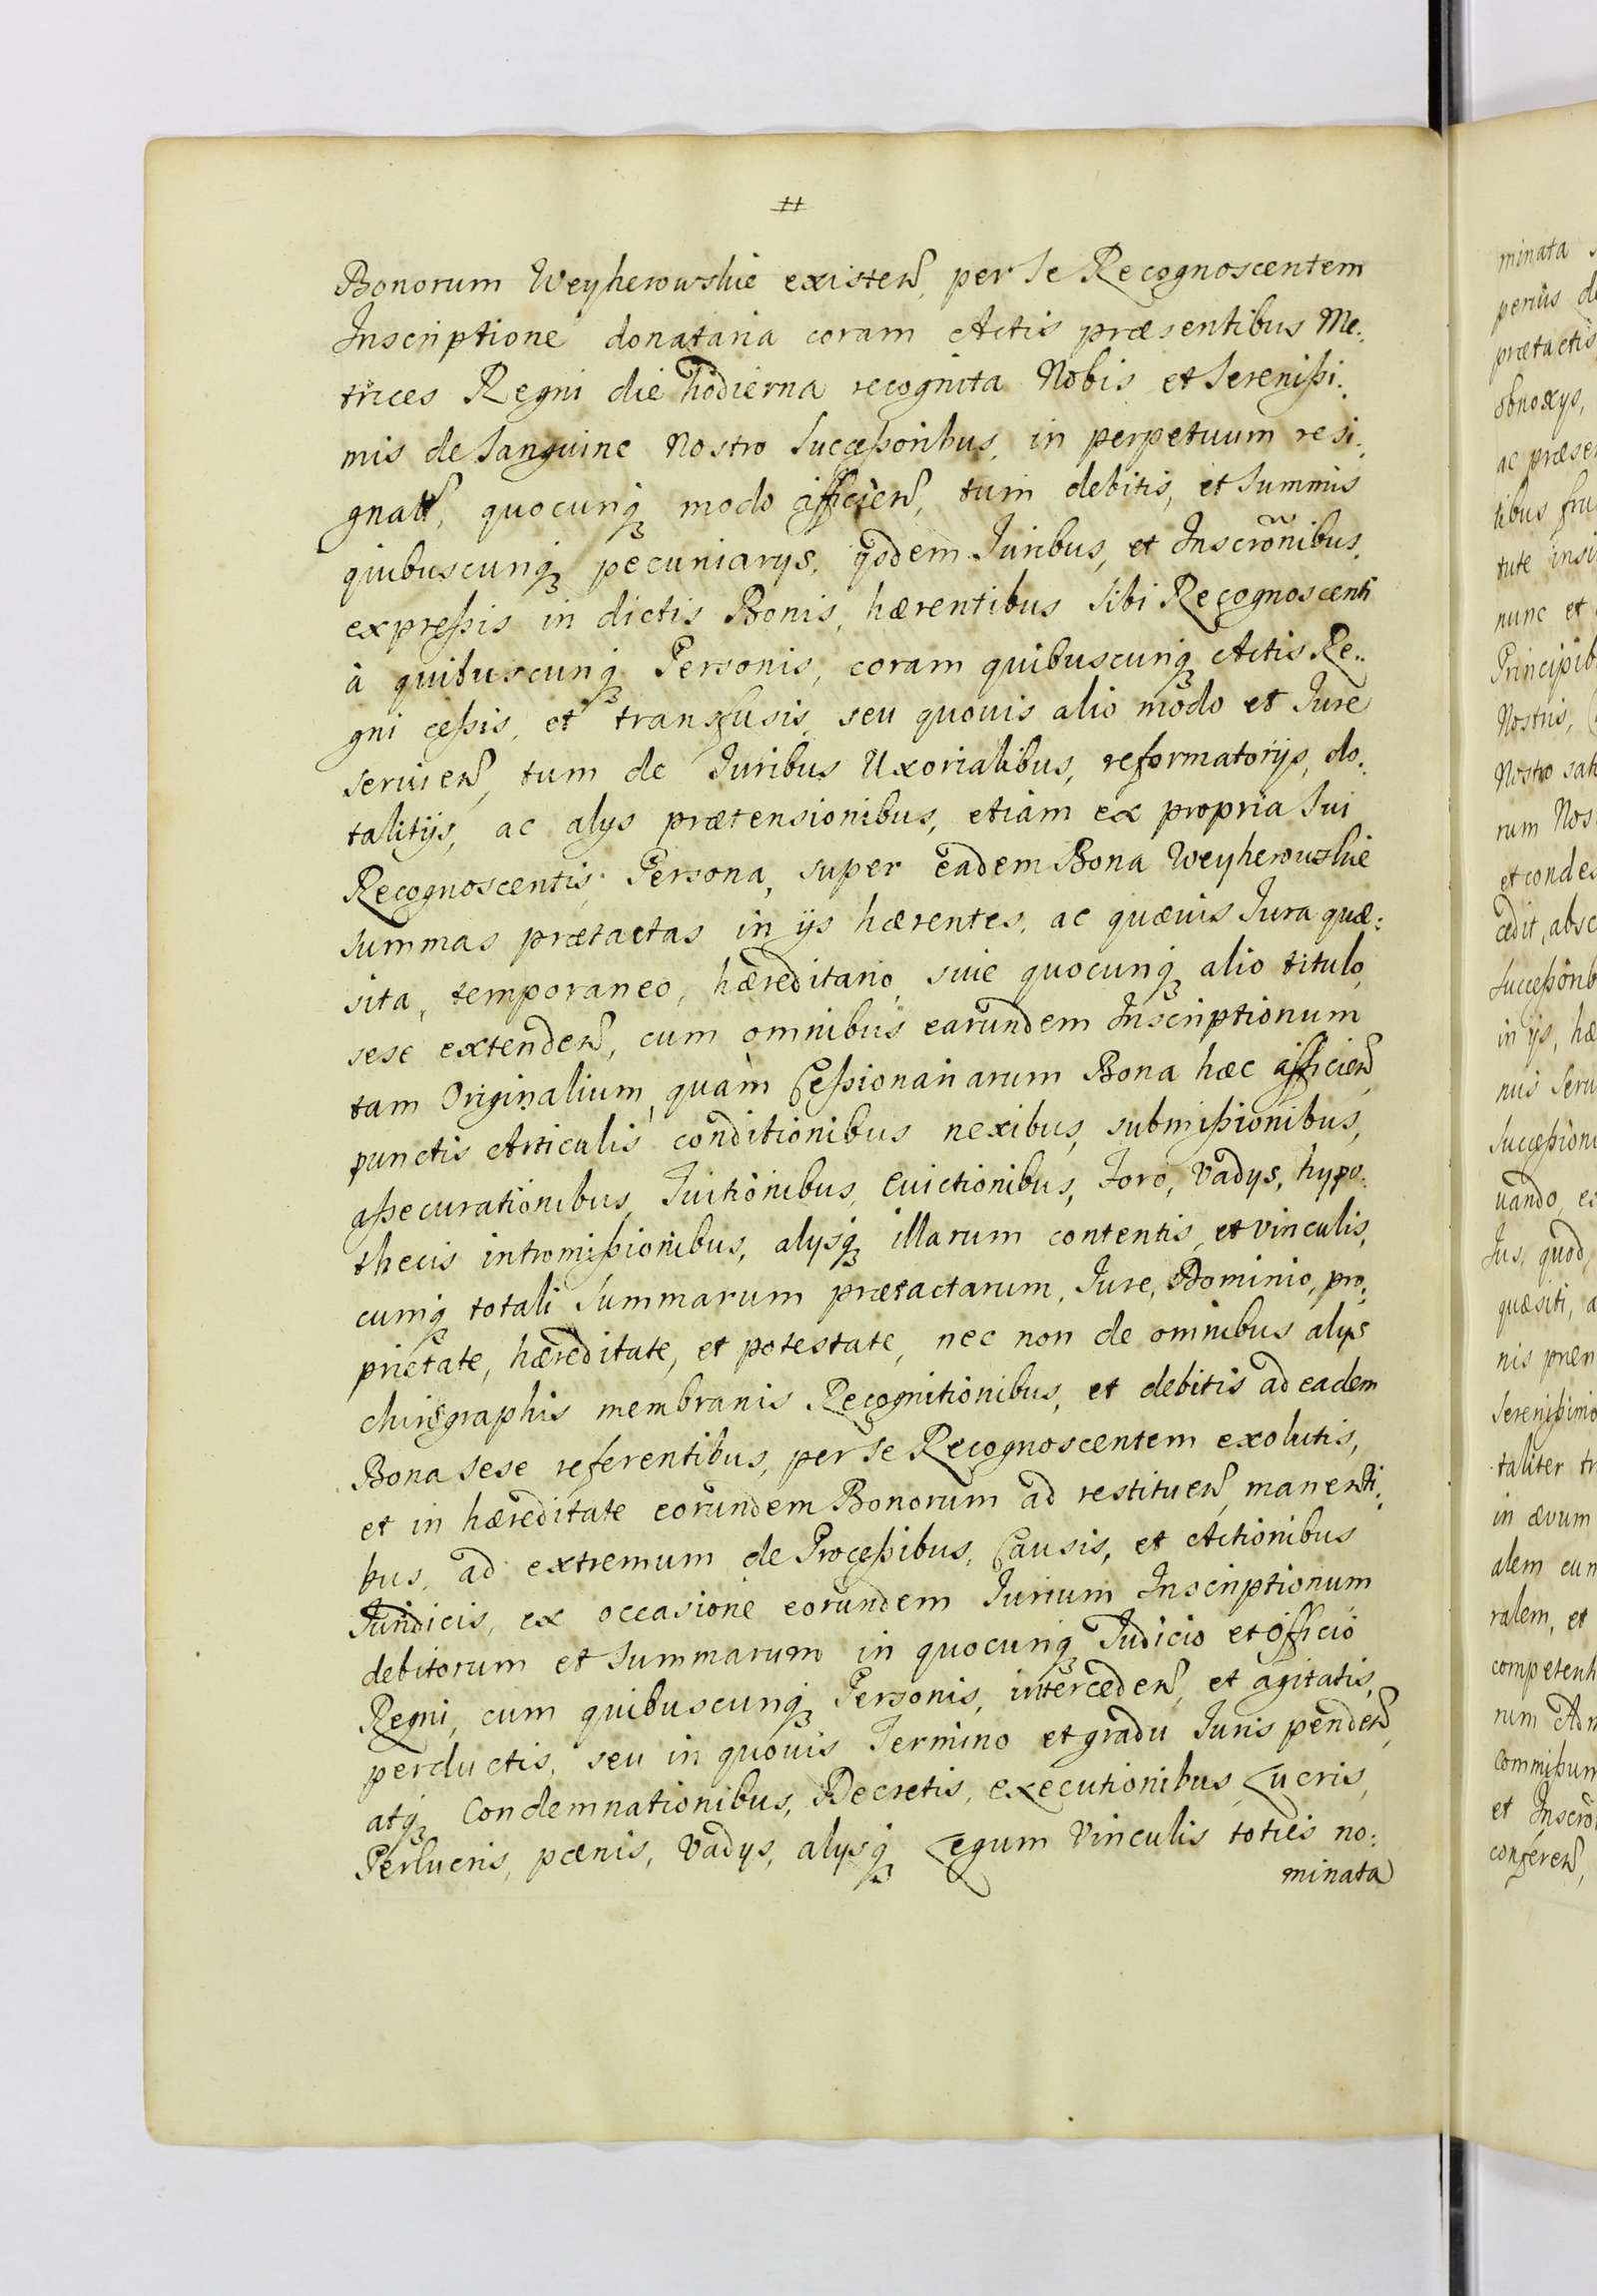 Bonorum Weyherowskie existeñ, per se Recognoscentem
Inscriptione donataria coram Actis præsentibus Me:
trices Regni die hodierna recognita Nobis et Serenißi:
mis de Sanguine Nostro Succeßoribus, in perpetuum resi:
gnatt, quocunq́ꝫ modo afficieñ, tum debitis, et Summis
quibuscunq́ꝫ pecuniarys, ijsdem Juribus, et Inscrõnibus
expreßis in dictis Bonis, hærentibus sibi Recognoscenti
à quibuscunq́ꝫ Personis, coram quibuscunq́ꝫ Actis Re:
gni ceßis, et transfusis, seu quouis alio modo et Jure
seruieñ, tum de Juribus Uxorialibus, reformatorijs, do:
talitijs, ac alys prætensionibus, etiam ex propria Sui
Recognoscentis Persona, super eadem Bona Weyherowskie
summas prætactas in ijs hærentes, ac quævis Jura quæ:
sita, temporaneo, hæreditario, siue quocunq́ꝫ alio titulo,
sese extendeñ, cum omnibus earundem Inscriptionum
tam Originalium, quàm Ceßionariarum Bona hæc afficieñ
punctis Articulis conditionibus nexibus, submißionibus,
aßecurationibus, Tuitionibus, Euictionibus, Foro, Vadys, hypo:
thecis intromißionibus, alysq́ꝫ illarum contentis, et vinculis,
cumq́ꝫ totali Summarum prætactarum, Jure, Dominio, pro:
prietate, hæreditate, et potestate, nec non de omnibus alys
chirographis membranis Recognitionibus, et debitis ad eadem
Bona sese referentibus, per se Recognoscentem exolutis,
et in hæreditate eorundem Bonorum ad restitueñ, manenti:
bus, ad extremum de Proceßibus, Causis, et Actionibus
Juridicis, ex occasione eorundem Jurium Inscriptionum
debitorum et Summarum in quocunq́ꝫ Judicio et Officio
Regni, cum quibuscunq́ꝫ Personis, intercedeñ, et agitatis,
perductis, seu in quouis Termino et gradu Juris pendeñ,
atq́ꝫ Condemnationibus, Decretis, executionibus Lucris,
Perlucris, pœnis, Vadys, alysq́ꝫ Legum Vinculis toties no:
minata
minata
perius
prætactis
obnoxys,
tibus
nunc et
Nostris,
rum
cedit,
in ijs,
Jus, quod
quæsiti,
taliter
in ævum
alem
ralem, et
rum
et
confereñ,